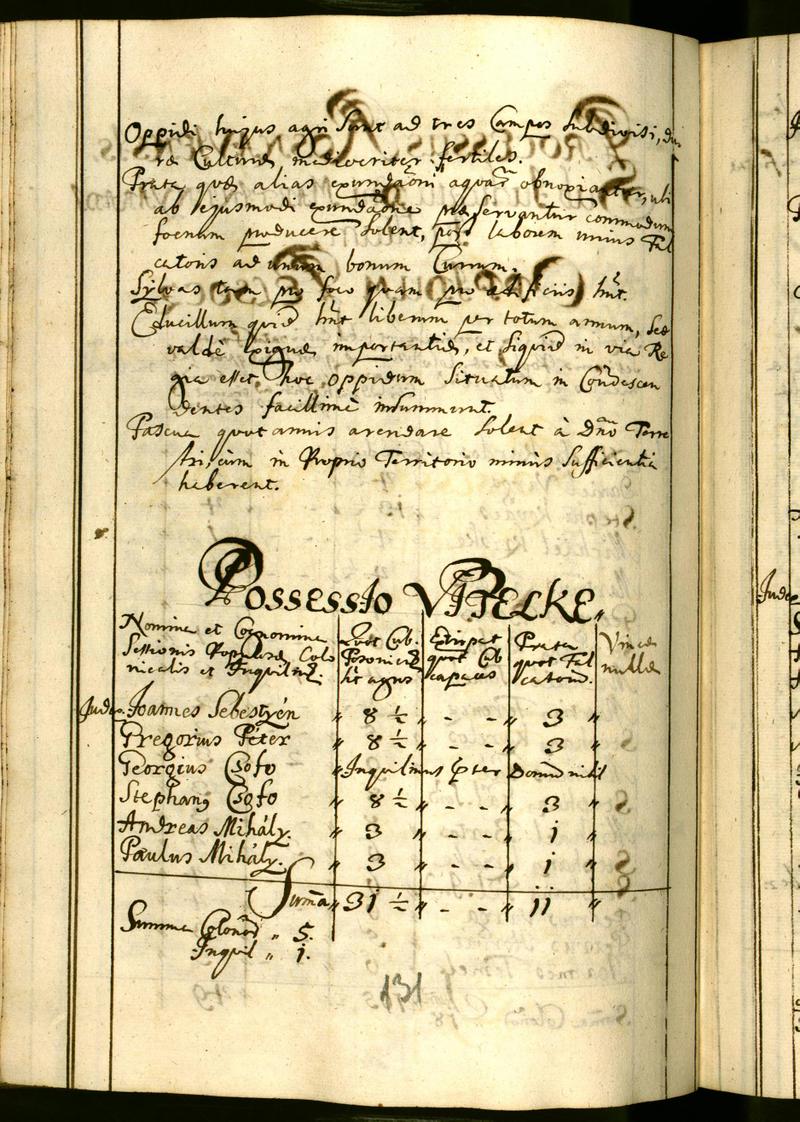 Oppidi hujus agri sunt ad tres Campos subdivisi, du
ræ Culturæ mediocriter fertiles.
Prata quæ alias exundaoni aquar obnoxiantur, ubi
ab ejusmodi exundaone præservantur commodum
foenum producere solent, post laborem unius Fal
catoris ad unum bonum Currum.
Sylvas tam pro foco quam pro ædificiis hnt.
Educillum quid hnt liberum per totum annum, sed
valdè exiguæ importantiæ, et siquid in via Re
gia esset hoc oppidum situatum in Condescen
dentes facillimè insummerent.
Pascua quotannis arendare solent à Dno Terre
stri, cum in Proprio Territorio minus sufficientia
haberent.
Possessio VIPELKE.
Nomina et Cognomina
Sessionis Populosæ Colo
nicalis et Inquilinæ.
Quot Cub.
Posonien
sit agrus
Extirpat
quot Cub
capaces
Prata
quot Fal
catorum.
Vineæ
nullæ
Judex Joannes Sebestyén " 8 ½ " - - " 3 "
Gregorius Péter " 8 ½ " - - " 3 "
Georgius Csofo " Inquilinus præter Domum nihil
Stephanq Csofo " 8 ½ " - - " 3 "
Andreas Mihály. " 3 " - - " 1 "
Paulus Mihály. " 3 " - - " 1 "
Summa " 31 ½ " - - " 11 "
Summa Colonor " 5.
Inquil " 1.
131
Judex